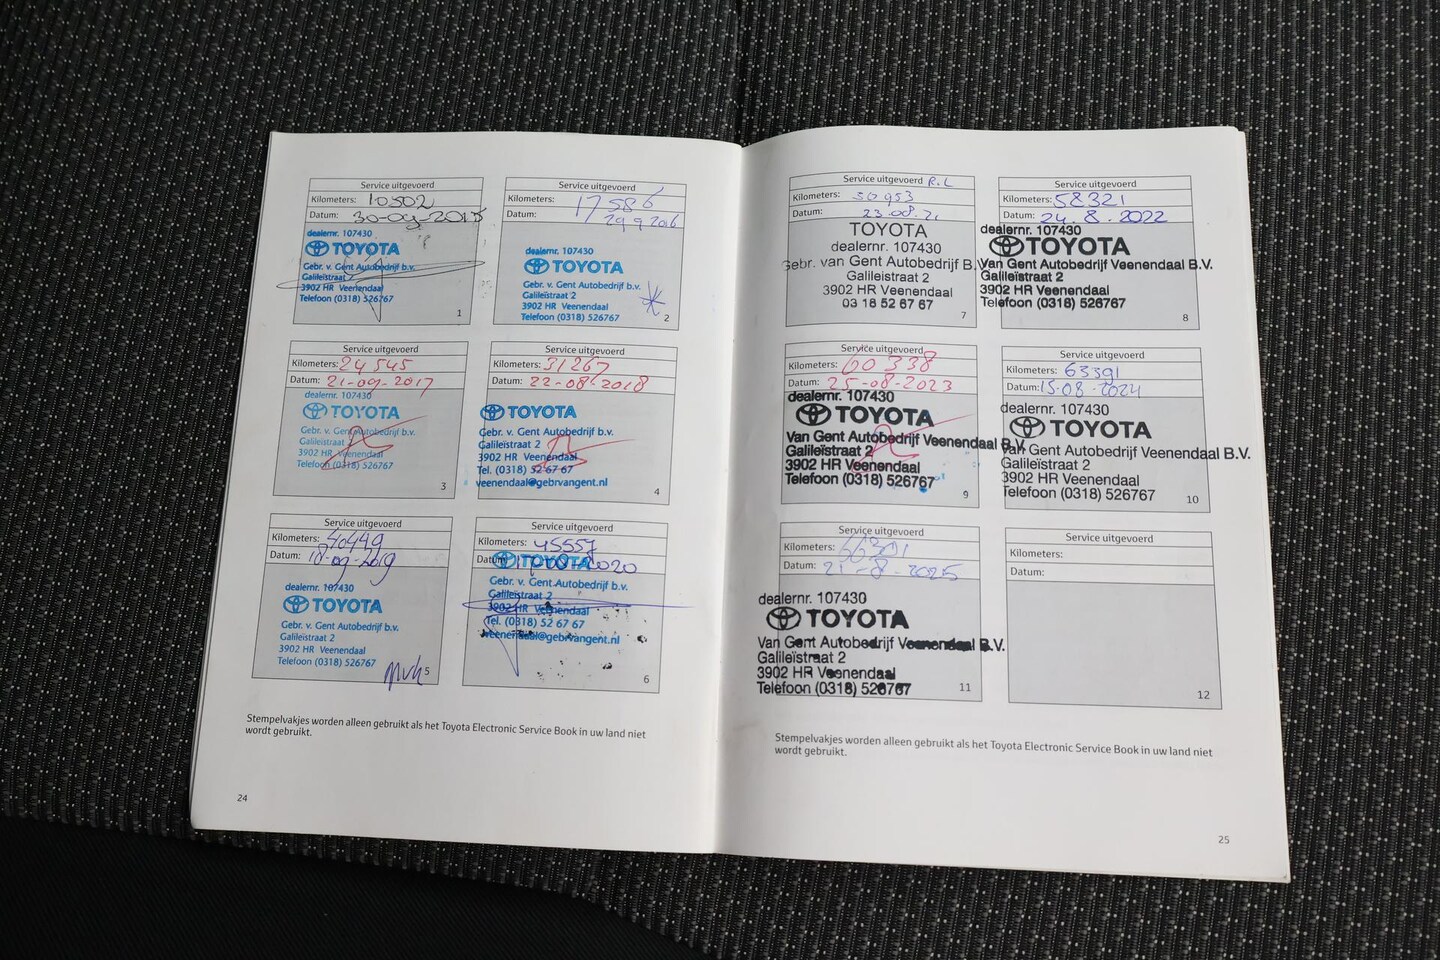 Service uitgevoerd
Kilometers: 10502
Datum: 30-09-2015
dealernr. 107430
TOYOTA
Gebr. v. Gent Autobedrijf b.v.
Galileïstraat 2
3902 HR Veenendaal
Telefoon (0318) 526767
1
Service uitgevoerd
Kilometers: 17586
Datum: 29 9 2016
dealernr. 107430
TOYOTA
Gebr. v. Gent Autobedrijf b.v.
Galileïstraat 2
3902 HR Veenendaal
Telefoon (0318) 526767
2
Service uitgevoerd
Kilometers: 24545
Datum: 21-09-2017
dealernr. 107430
TOYOTA
Gebr. v. Gent Autobedrijf b.v.
Galileïstraat
3902 HR Veenendaal
Telefoon (0318) 526767
3
Service uitgevoerd
Kilometers: 31267
Datum: 22-08-2018
TOYOTA
Gebr. v. Gent Autobedrijf b.v.
Galileïstraat 2
3902 HR Veenendaal
Tel. (0318) 52 67 67
veenendaal@gebrvangent.nl
4
Service uitgevoerd
Kilometers: 40449
Datum: 18-09-2019
dealernr. 107430
TOYOTA
Gebr. v. Gent Autobedrijf b.v.
Galileïstraat 2
3902 HR Veenendaal
Telefoon (0318) 526767
5
Service uitgevoerd
Kilometers: 45557
Datum: 2020
TOYOTA
Gebr. v. Gent Autobedrijf b.v.
Galileïstraat 2
3902 HR Veenendaal
Tel. (0318) 52 67 67
veenendaal@gebrvangent.nl
6
Stempelvakjes worden alleen gebruikt als het Toyota Electronic Service Book in uw land niet
wordt gebruikt.
24
Service uitgevoerd R.L
Kilometers: 50953
Datum: 23.08.21
TOYOTA
dealernr. 107430
Gebr. van Gent Autobedrijf B.V.
Galileistraat 2
3902 HR Veenendaal
03 18 52 67 67
7
Service uitgevoerd
Kilometers: 58321
Datum: 24.8.2022
dealernr. 107430
TOYOTA
Van Gent Autobedrijf Veenendaal B.V.
Galileïstraat 2
3902 HR Veenendaal
Telefoon (0318) 526767
8
Service uitgevoerd
Kilometers: 60338
Datum: 25-08-2023
dealernr. 107430
TOYOTA
Van Gent Autobedrijf Veenendaal B.V.
Galileïstraat 2
3902 HR Veenendaal
Telefoon (0318) 526767
9
Service uitgevoerd
Kilometers: 63391
Datum: 15-08-2024
dealernr. 107430
TOYOTA
Van Gent Autobedrijf Veenendaal B.V.
Galileïstraat 2
3902 HR Veenendaal
Telefoon (0318) 526767
10
Service uitgevoerd
Kilometers: 66301
Datum: 21-8-2025
dealernr. 107430
TOYOTA
Van Gent Autobedrijf Veenendaal B.V.
Galileïstraat 2
3902 HR Veenendaal
Telefoon (0318) 526767
11
Service uitgevoerd
Kilometers:
Datum:
12
Stempelvakjes worden alleen gebruikt als het Toyota Electronic Service Book in uw land niet
wordt gebruikt.
25